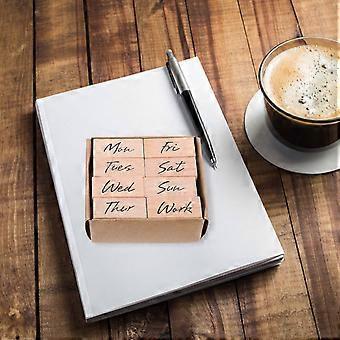 Mon Fri
Tues Sat
Wed Sun
Thur Work